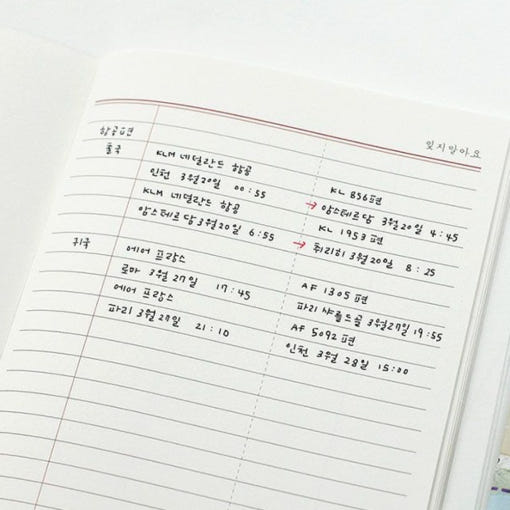 잊지말아요
항공편
출국
KLM 네덜란드 항공 KL 856편
인천 3월20일 00:55 → 암스테르담 3월20일 4:45
KLM 네덜란드 항공 KL 1953편
암스테르담 3월20일 6:55 → 취리히 3월20일 8:25
귀국
에어 프랑스 AF 1305 편
로마 3월 27일 17:45 파리 샤를드골 3월27일 19:55
에어 프랑스 AF 5092 편
파리 3월 27일 21:10 인천 3월 28일 15:00